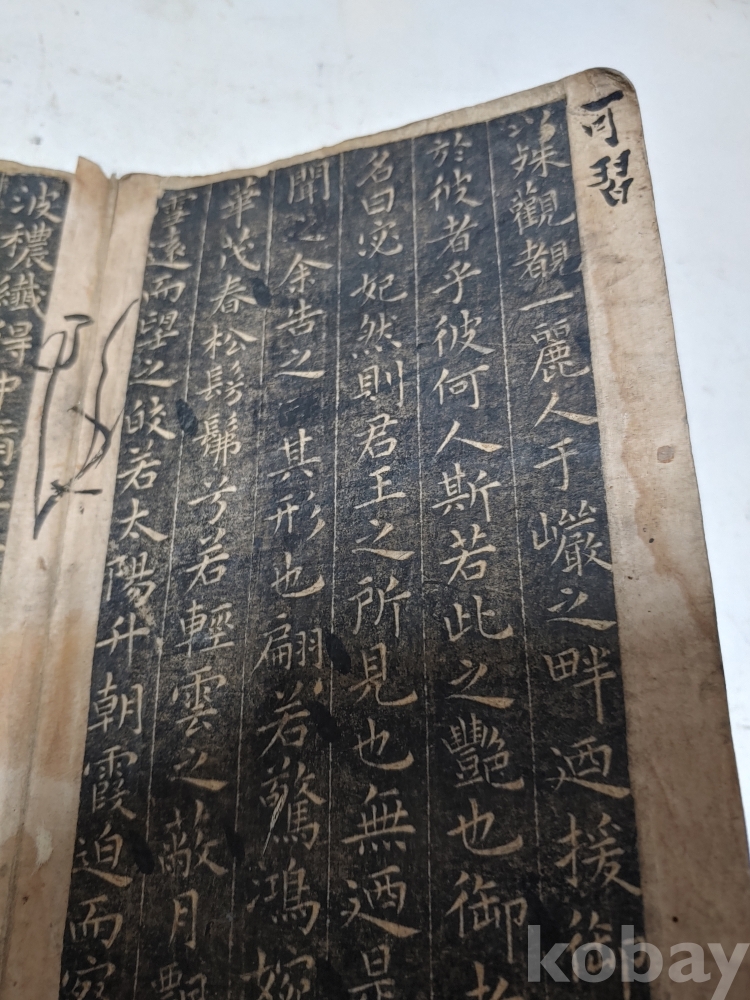 可習
以殊觀覩一麗人于巗之畔迺援御
於彼者乎彼何人斯若此之豔也御者
名曰宓妃然則君王之所見也無迺是
聞之余告之曰其形也翩若驚鴻婉
華茂春松髣髴兮若輕雲之蔽月飄
雪遠而望之皎若太陽升朝霞迫而察
波穠纖得中
kobay